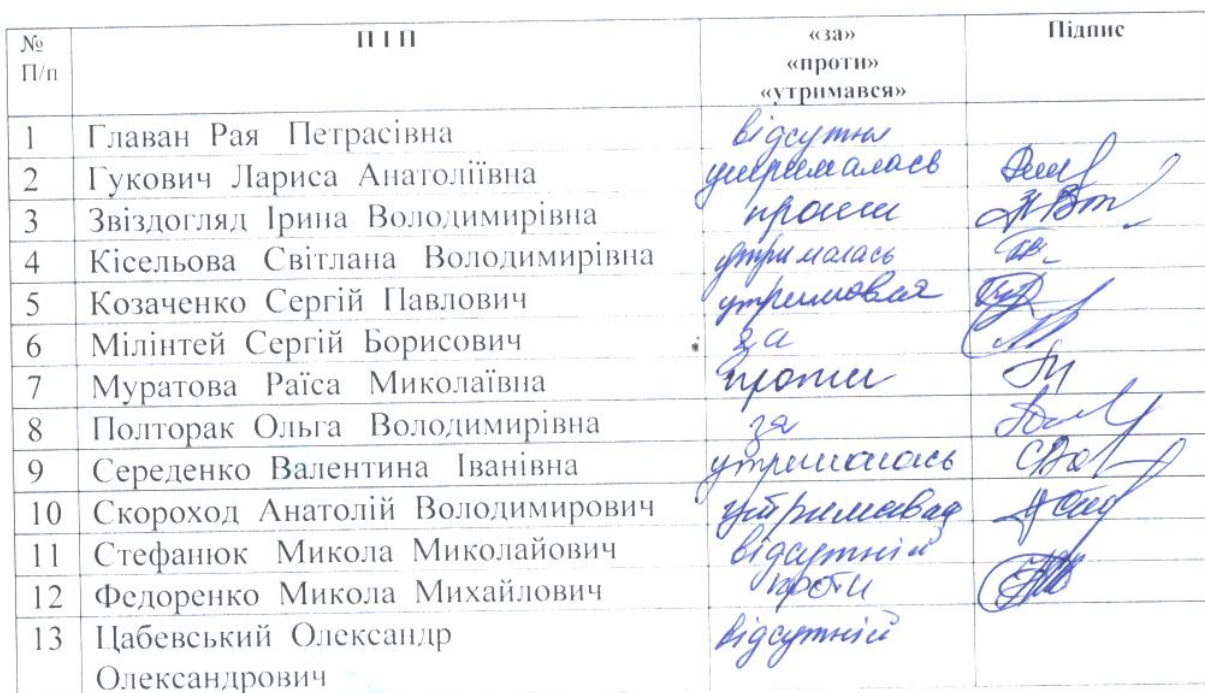 № П І П «за» Підпис
П/п «проти»
«утримався»
1 Главан Рая Петрасівна відсутня
2 Гукович Лариса Анатоліївна утрималась
3 Звіздогляд Ірина Володимирівна проти
4 Кісельова Світлана Володимирівна утрималась
5 Козаченко Сергій Павлович утримався
6 Мілінтей Сергій Борисович за
7 Муратова Раїса Миколаївна проти
8 Полторак Ольга Володимирівна за
9 Середенко Валентина Іванівна утрималась
10 Скороход Анатолій Володимирович утримавс
11 Стефанюк Микола Миколайович відсутній
12 Федоренко Микола Михайлович проти
13 Цабевський Олександр відсутній
Олександрович